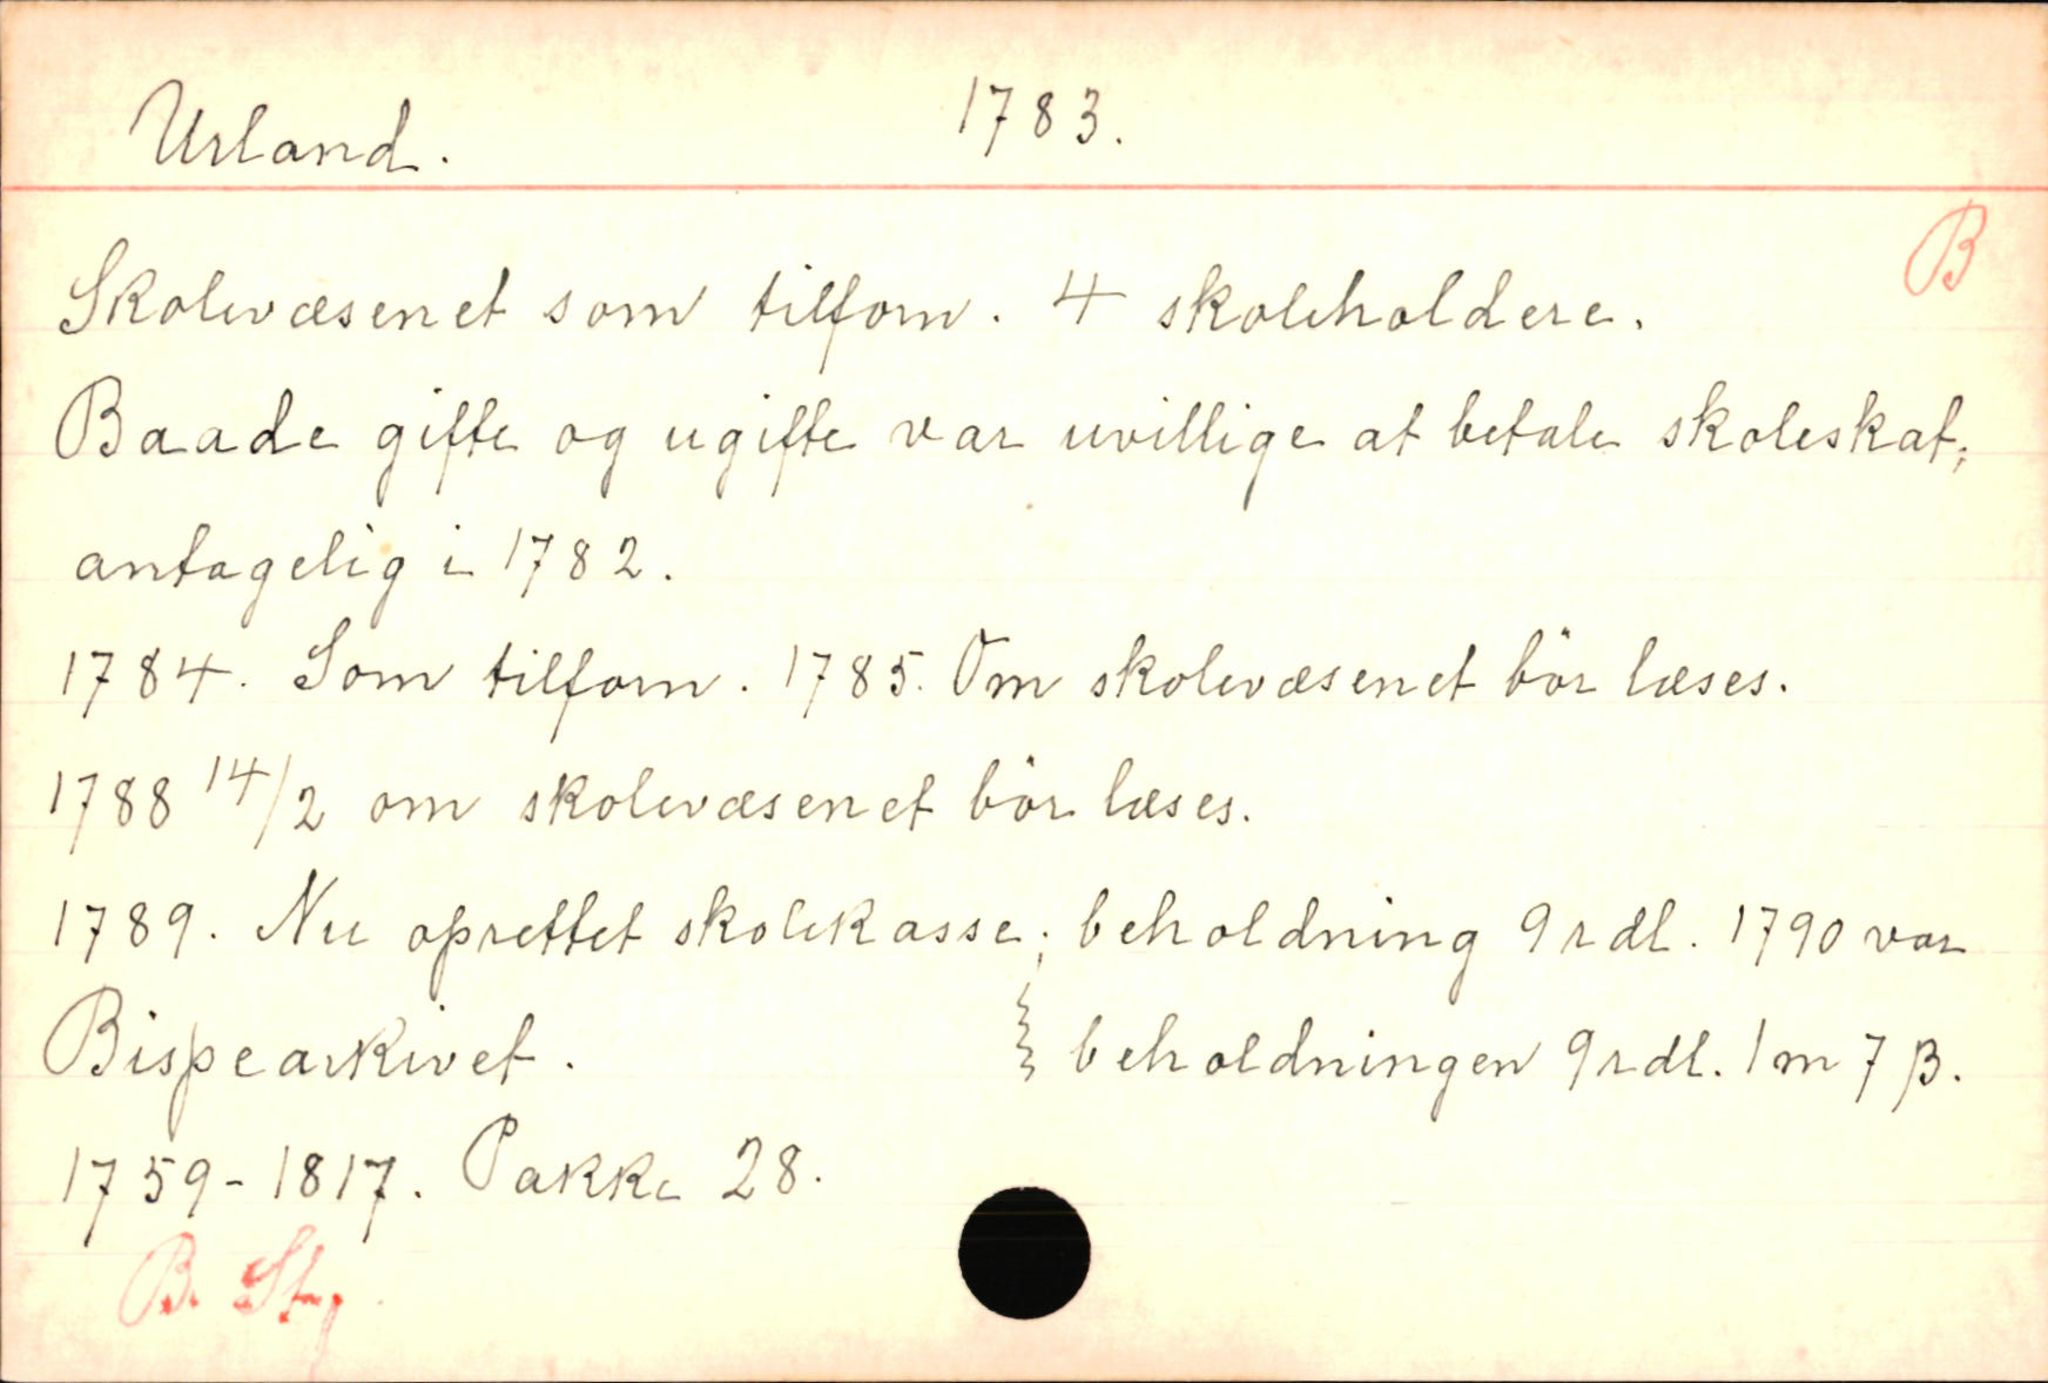 Urland. 1783.
B
Skolevæsenet som tilforn. 4 skoleholdere.
Baade gifte og ugifte var uvillige at betale skoleskat,
antagelig i 1782.
1784. Som tilforn. 1785. Om skolevæsenet bör læses.
1788 14/2 om skolevæsenet bör læses.
1789. Nu oprettet skolekasse; beholdning 9 rdl. 1790 var
beholdningen 9 rdl. 1 m 7 β.
Bispearkivet.
1759-1817. Pakke 28.
B.